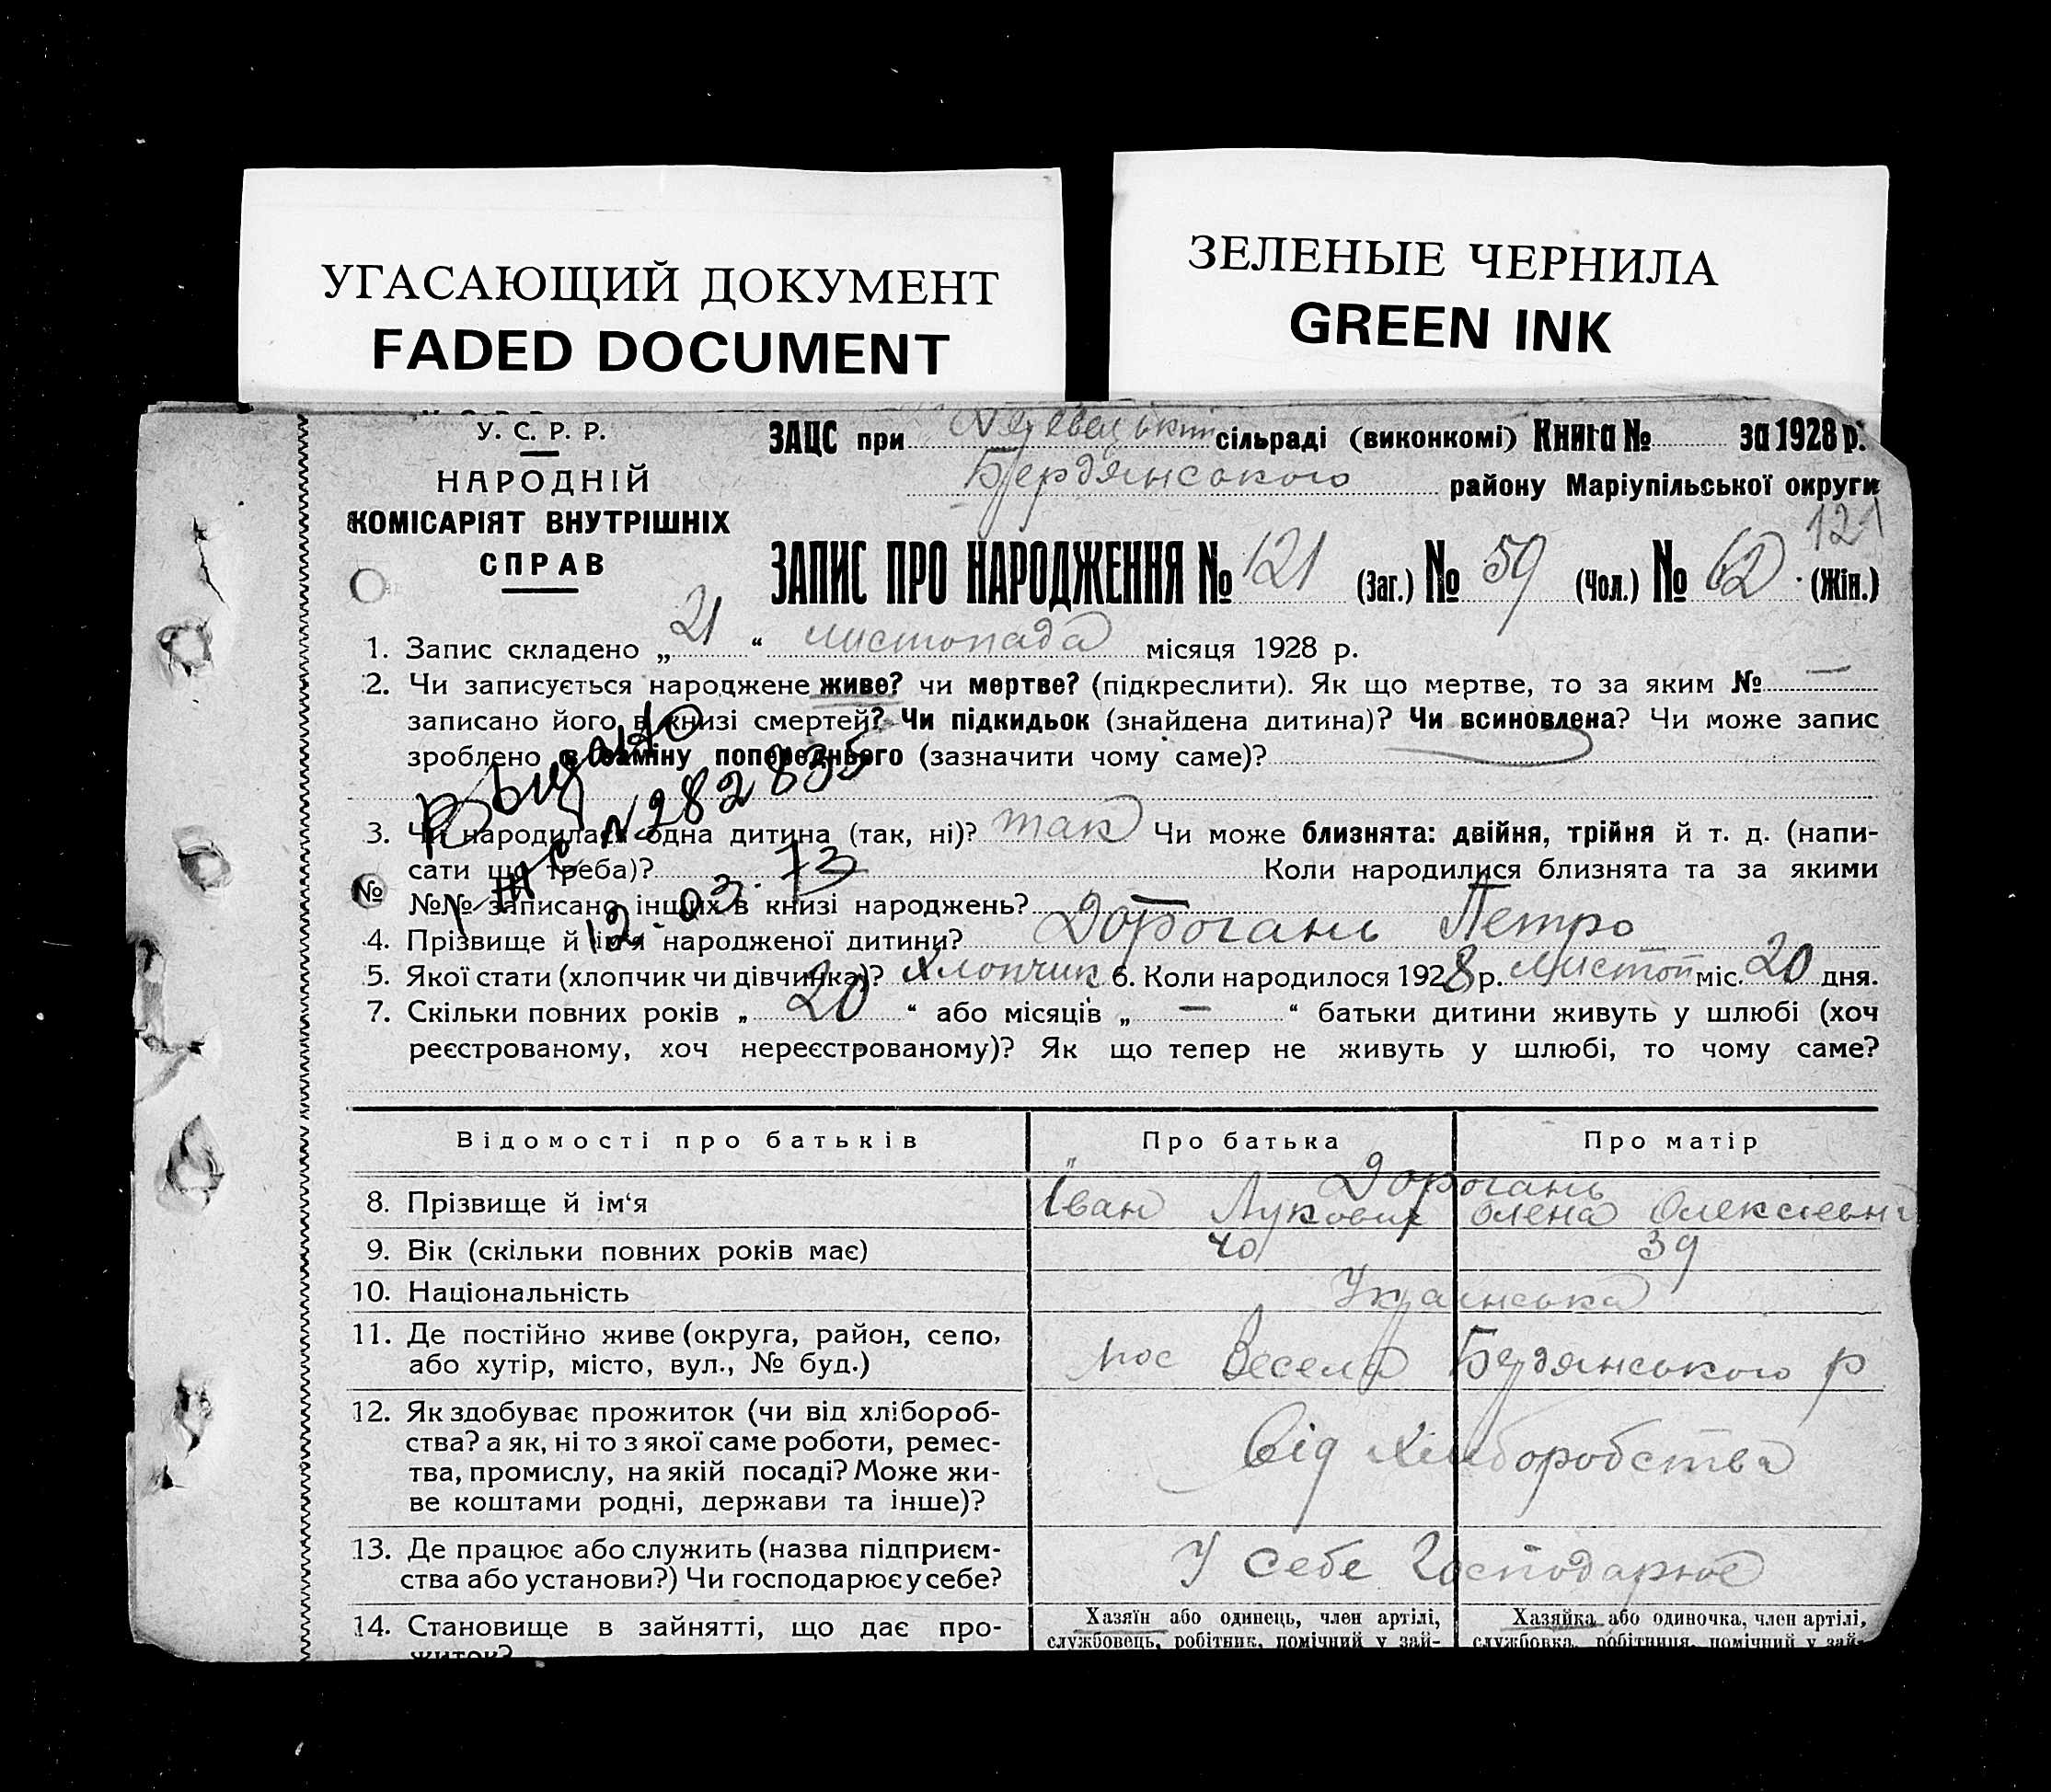 УГАСАЮЩИЙ ДОКУМЕНТ
FADED DOCUMENT
ЗЕЛЕНЫЕ ЧЕРНИЛА
GREEN INK
У. С. Р. Р.
НАРОДНІЙ
КОМІСАРІЯТ ВНУТРІШНІХ
СПРАВ
ЗАЦС при сільраді (виконкомі) Книга № за 1928 р.
Бердянського району Маріупільської округи
121
ЗАПИС ПРО НАРОДЖЕННЯ № 121 (Заг.) № 59 (Чол.) № 62 (Жін.)
1. Запис складено „ 21 “ листопада місяця 1928 р.
2. Чи записується народжене живе? чи мертве? (підкреслити). Як що мертве, то за яким № —
записано його в книзі смертей? Чи підкидьок (знайдена дитина)? Чи всиновлена? Чи може запис
зроблено в заміну попереднього (зазначити чому саме)?
Выдано
№ 282835
12.03.73
3. Чи народилася одна дитина (так, ні)? так Чи може близнята: двійня, трійня й т. д. (напи-
сати що треба)? Коли народилися близнята та за якими
№
№№ записано інших в книзі народжень? —
4. Прізвище й ім'я народженої дитини? Дорогань Петро
5. Якої стати (хлопчик чи дівчинка)? Хлопчик 6. Коли народилося 1928 р. листоп міс. 20 дня.
7. Скільки повних років „ 20 “ або місяців „ — “ батьки дитини живуть у шлюбі (хоч
реєстрованому, хоч нереєстрованому)? Як що тепер не живуть у шлюбі, то чому саме?
Відомості про батьків Про батька Про матір
Дорогань
8. Прізвище й ім‘я Іван Лукович Олена Олексіевна
9. Вік (скільки повних років має) 40 39
10. Національність Українська
11. Де постійно живе (округа, район, село,
або хутір, місто, вул., № буд.) пос Весела Бердянського р
12. Як здобуває прожиток (чи від хлібороб-
ства? а як, ні то з якої саме роботи, ремес-
тва, промислу, на якій посаді? Може жи-
ве коштами родні, держави та інше)?
від хліборобства
13. Де працює або служить (назва підприєм-
ства або установи?) Чи господарює у себе?
У себе Господарює
14. Становище в зайнятті, що дає про-
житок?
Хазяїн або одинець, член артілі,
службовець, робітник, помічний у зай-
Хазяйка або одиночка, член артілі,
службовка, робітниця, помічний у зай-